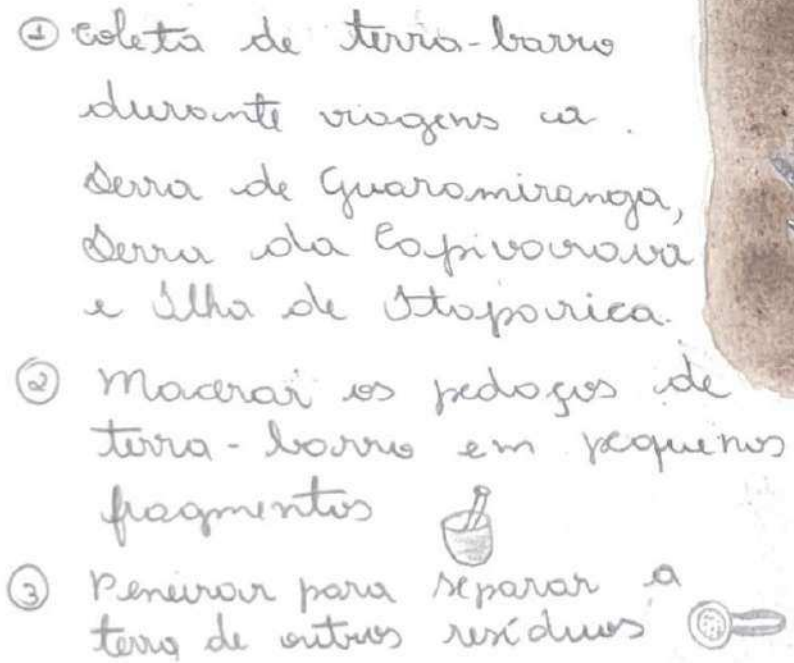 ① Coleta de terra-barro
durante viagens a
Serra de Guaramiranga,
Serra da Capivarara
e Ilha de Itaparica.
② Macerar os pedaços de
terra-barro em pequenos
fragmentos
③ Peneirar para separar a
terra de outros resíduos